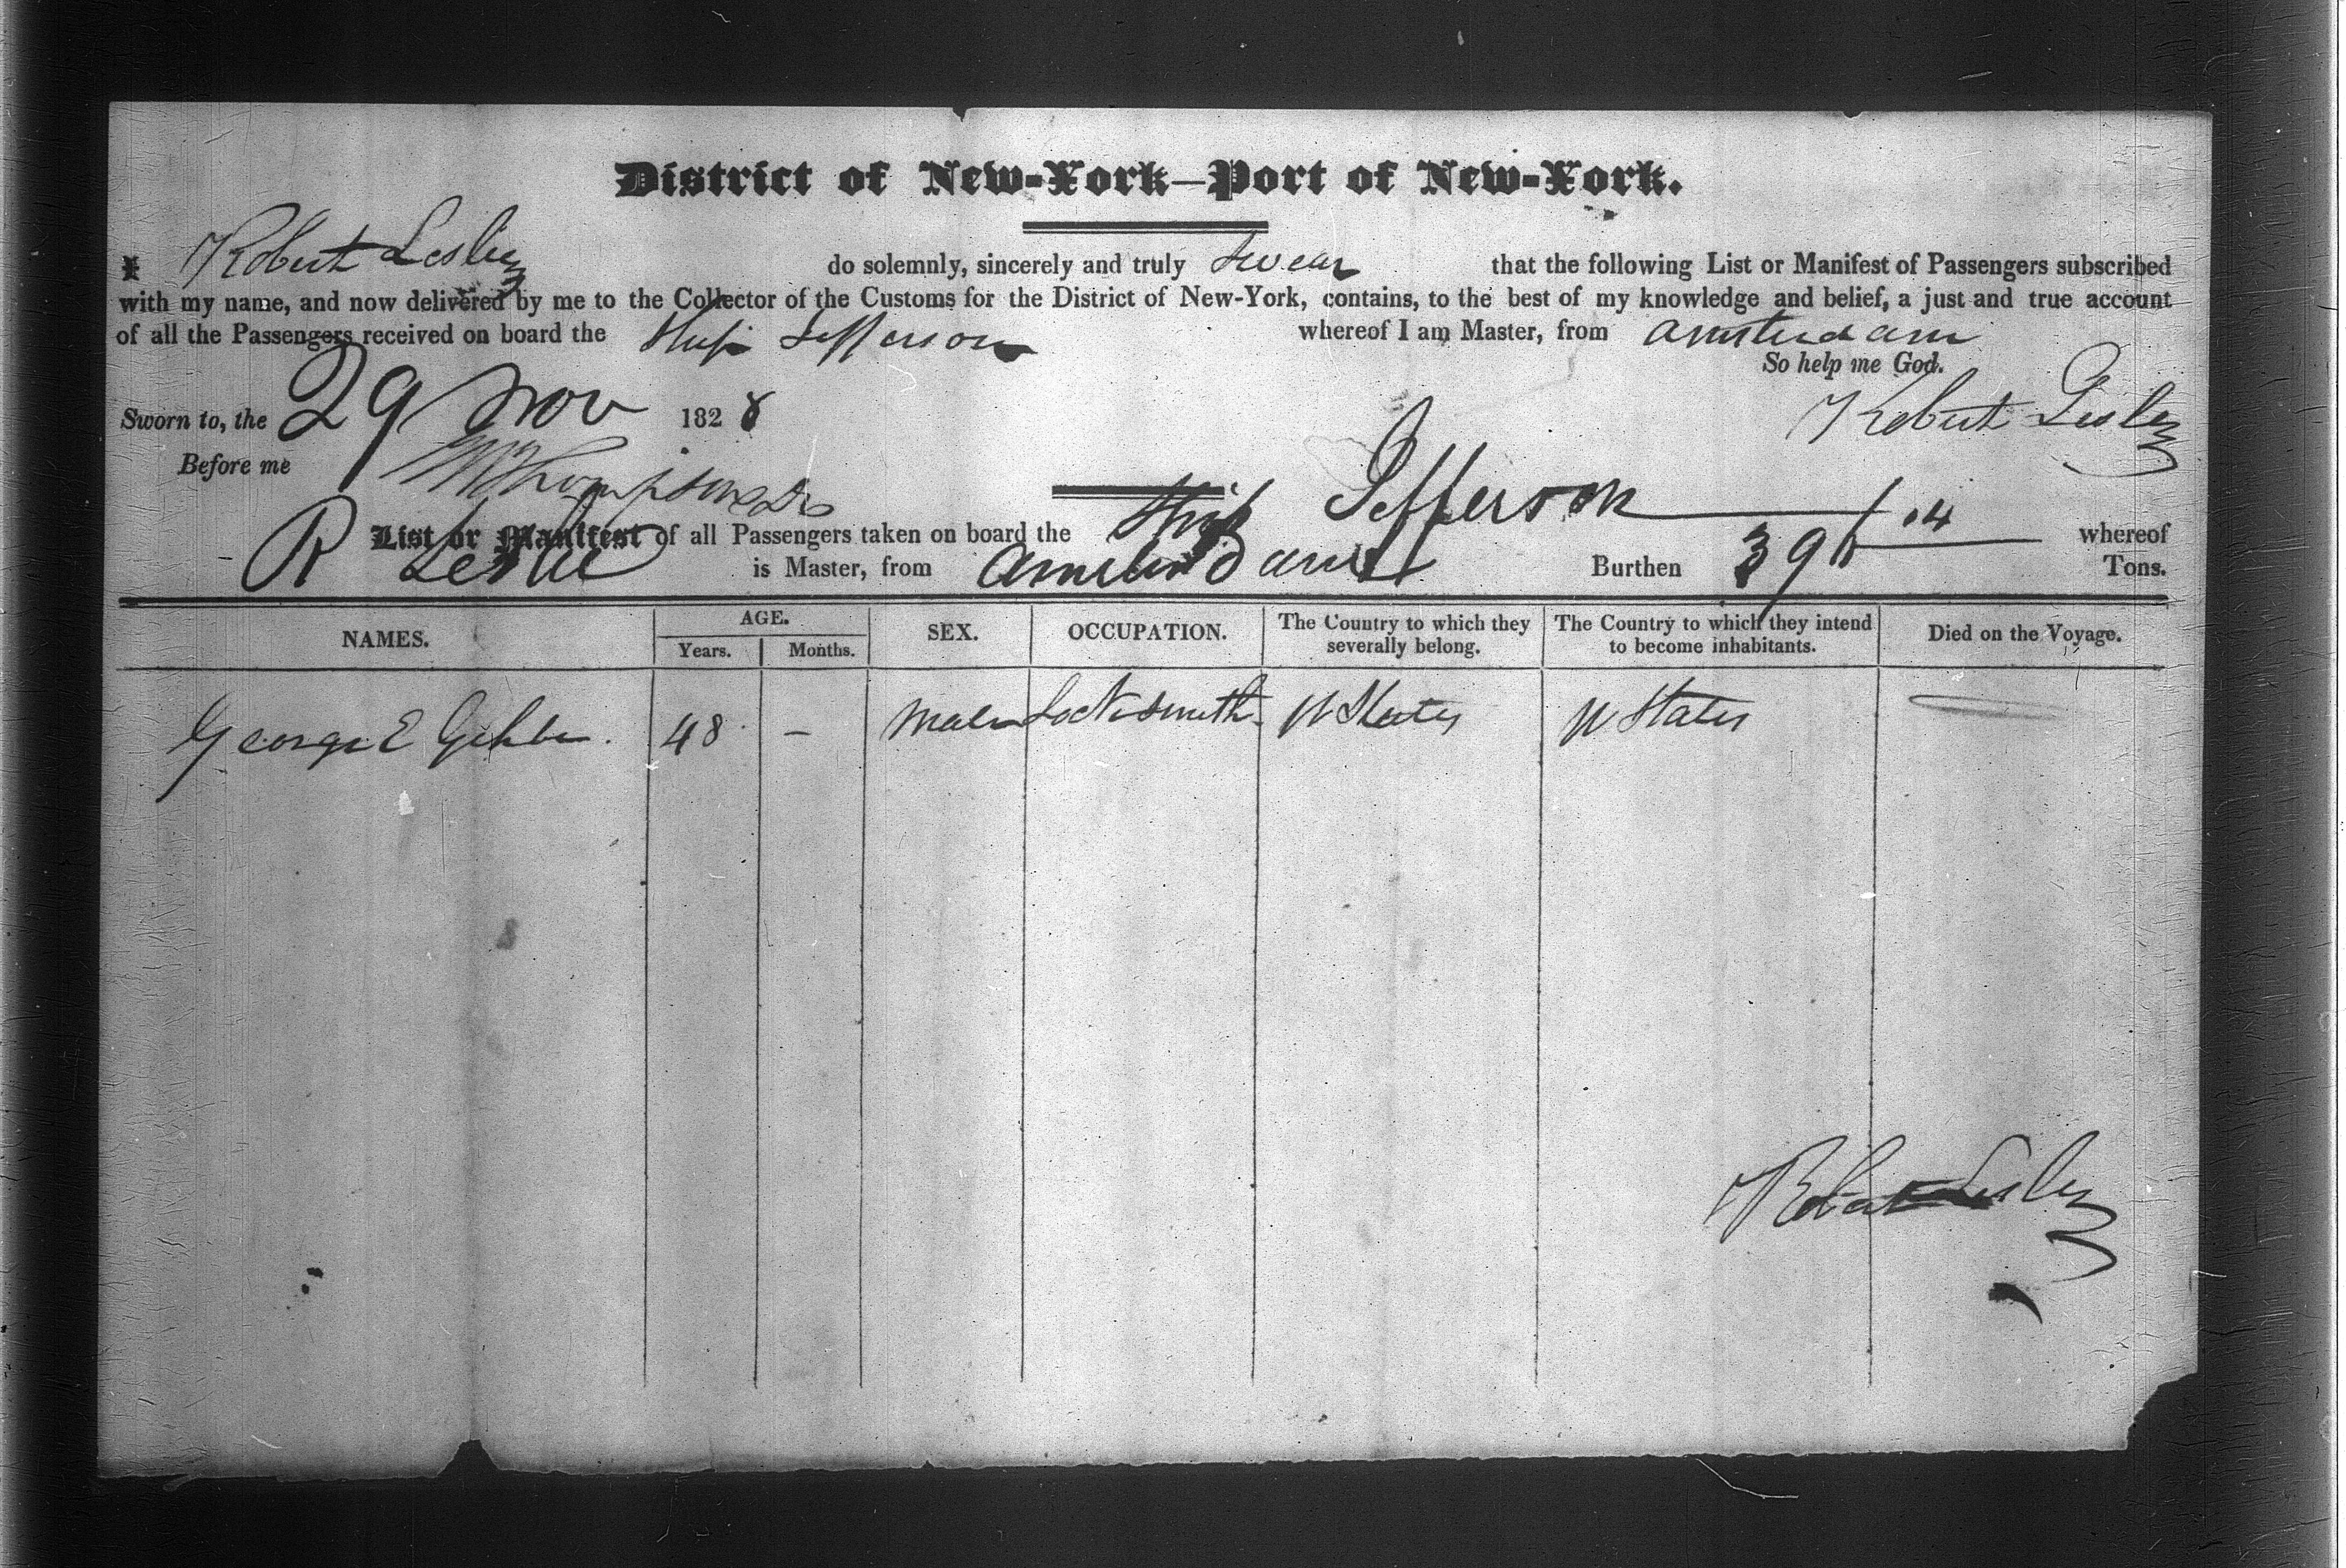 District of New-York—Port of New-York.
I Robert Lesley do solemnly, sincerely and truly swear that the following List or Manifest of Passengers subscribed
with my name, and now delivered by me to the Collector of the Customs for the District of New-York, contains, to the best of my knowledge and belief, a just and true account
of all the Passengers received on board the Ship Jefferson whereof I am Master, from Amsterdam
So help me God.
Sworn to, the 29 Nov 1828 Robert Lesley
Before me
List or Manifest of all Passengers taken on board the Ship Jefferson whereof
R Leslie is Master, from Amsterdam Burthen Tons.
NAMES. AGE. SEX. OCCUPATION. The Country to which they severally belong. The Country to which they intend to become inhabitants. Died on the Voyage.
Years. Months.
George E 48 - Male Locksmith U States U States
Robert Lesley